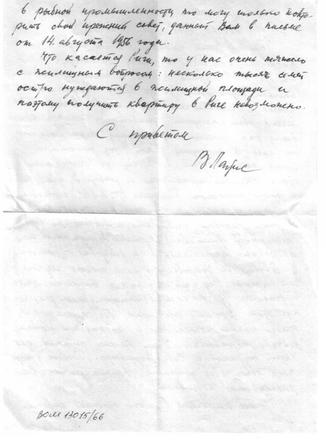 в рыбной промышленности то могу только повто-
рить свой прежний совет, данный Вам в письме
от 14. августа 1956 года.
Что касается Риги, то у нас очень тяжело
с жилищным вопросом: несколько тысяч семей
остро нуждаются в жилищной площади и
поэтому получить квартиру в Риге невозможно.
С приветом
В. Лацис
ВОМ 13015/66